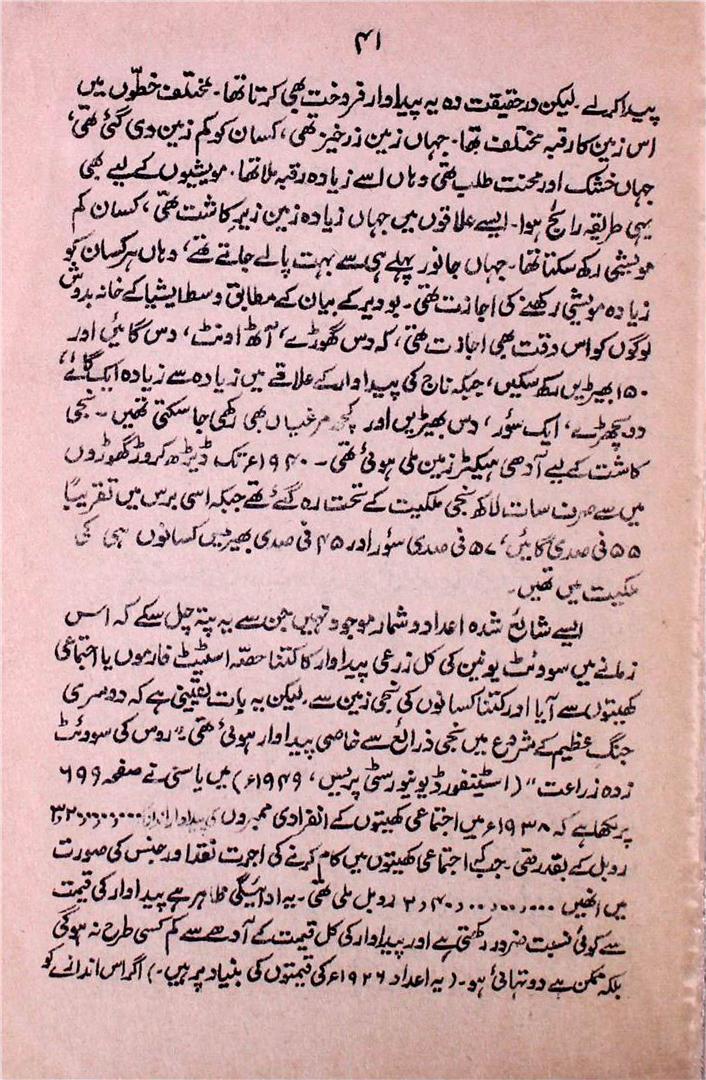 ۴۱
پیدا کرلے۔ لیکن درحقیقت وہ یہ پیداوار فروخت بھی کرتا تھا۔ مختلف خطوں میں
اس زمین کا رقبہ مختلف تھا۔ جہاں زمین زرخیز تھی، کسان کو کم زمین دی گئی تھی،
جہاں خشک اور محنت طلب تھی وہاں اسے زیادہ رقبہ ملا تھا۔ مویشیوں کے لیے بھی
یہی طریقہ رائج ہوا۔ ایسے علاقوں میں جہاں زیادہ زمین زیرِ کاشت تھی، کسان کم
مویشی رکھ سکتا تھا۔ جہاں جانور پہلے ہی سے بہت پالے جاتے تھے، وہاں ہر کسان کو
زیادہ مویشی رکھنے کی اجازت تھی۔ بودیر کے بیان کے مطابق وسط ایشیا کے خانہ بدوش
لوگوں کو اس وقت بھی اجازت تھی، کہ دس گھوڑے، آٹھ اونٹ، دس گائیں اور
۱۵۰ بھیڑیں رکھ سکیں، جبکہ ناج کی پیداوار کے علاقے میں زیادہ سے زیادہ ایک گائے،
دو بچھڑے، ایک سؤر، دس بھیڑیں اور کچھ مرغیاں بھی رکھی جا سکتی تھیں۔ نجی
کاشت کے لیے آدھی ہیکٹر زمین ملی ہوئی تھی۔ ۱۹۴۰ء تک ڈیڑھ کروڑ گھوڑوں
میں سے صرف سات لاکھ نجی ملکیت کے تحت رہ گئے تھے جبکہ اسی برس میں تقریباً
۵۵ فی صدی گائیں، ۵۷ فی صدی سؤر اور ۴۵ فی صدی بھیڑیں کسانوں ہی کی
ملکیت میں تھیں۔
ایسے شائع شدہ اعداد و شمار موجود نہیں جن سے یہ پتہ چل سکے کہ اس
زمانے میں سوویٹ یونین کی کل زرعی پیداوار کا کتنا حصّہ اسٹیٹ فارموں یا اجتماعی
کھیتوں سے آیا اور کتنا کسانوں کی نجی زمین سے۔ لیکن یہ بات یقینی ہے کہ دوسری
جنگ عظیم کے شروع میں نجی ذرائع سے خاصی پیداوار ہوئی تھی۔ "روس کی سوویٹ
زدہ زراعت" (اسٹینفورڈ یونیورسٹی پریس، ۱۹۴۹ء) میں یاسنی نے صفحہ ۶۹۹
پر لکھا ہے کہ ۱۹۳۸ء میں اجتماعی کھیتوں کے انفرادی ممبروں کی پیداوار اندازاً
روبل کے بقدر تھی۔ جب کہ اجتماعی کھیتوں میں کام کرنے کی اجرت نقد اور جنس کی صورت
میں انھیں روبل ملی تھی۔ یہ ادائیگی ظاہر ہے پیداوار کی قیمت
سے کوئی نسبت ضرور رکھتی ہے اور پیداوار کی کل قیمت کے آدھے سے کم کسی طرح نہ ہوگی
بلکہ ممکن ہے دو تہائی ہو۔ (یہ اعداد ۱۹۲۶ء کی قیمتوں کی بنیاد پر ہیں۔) اگر اس اندازے کو